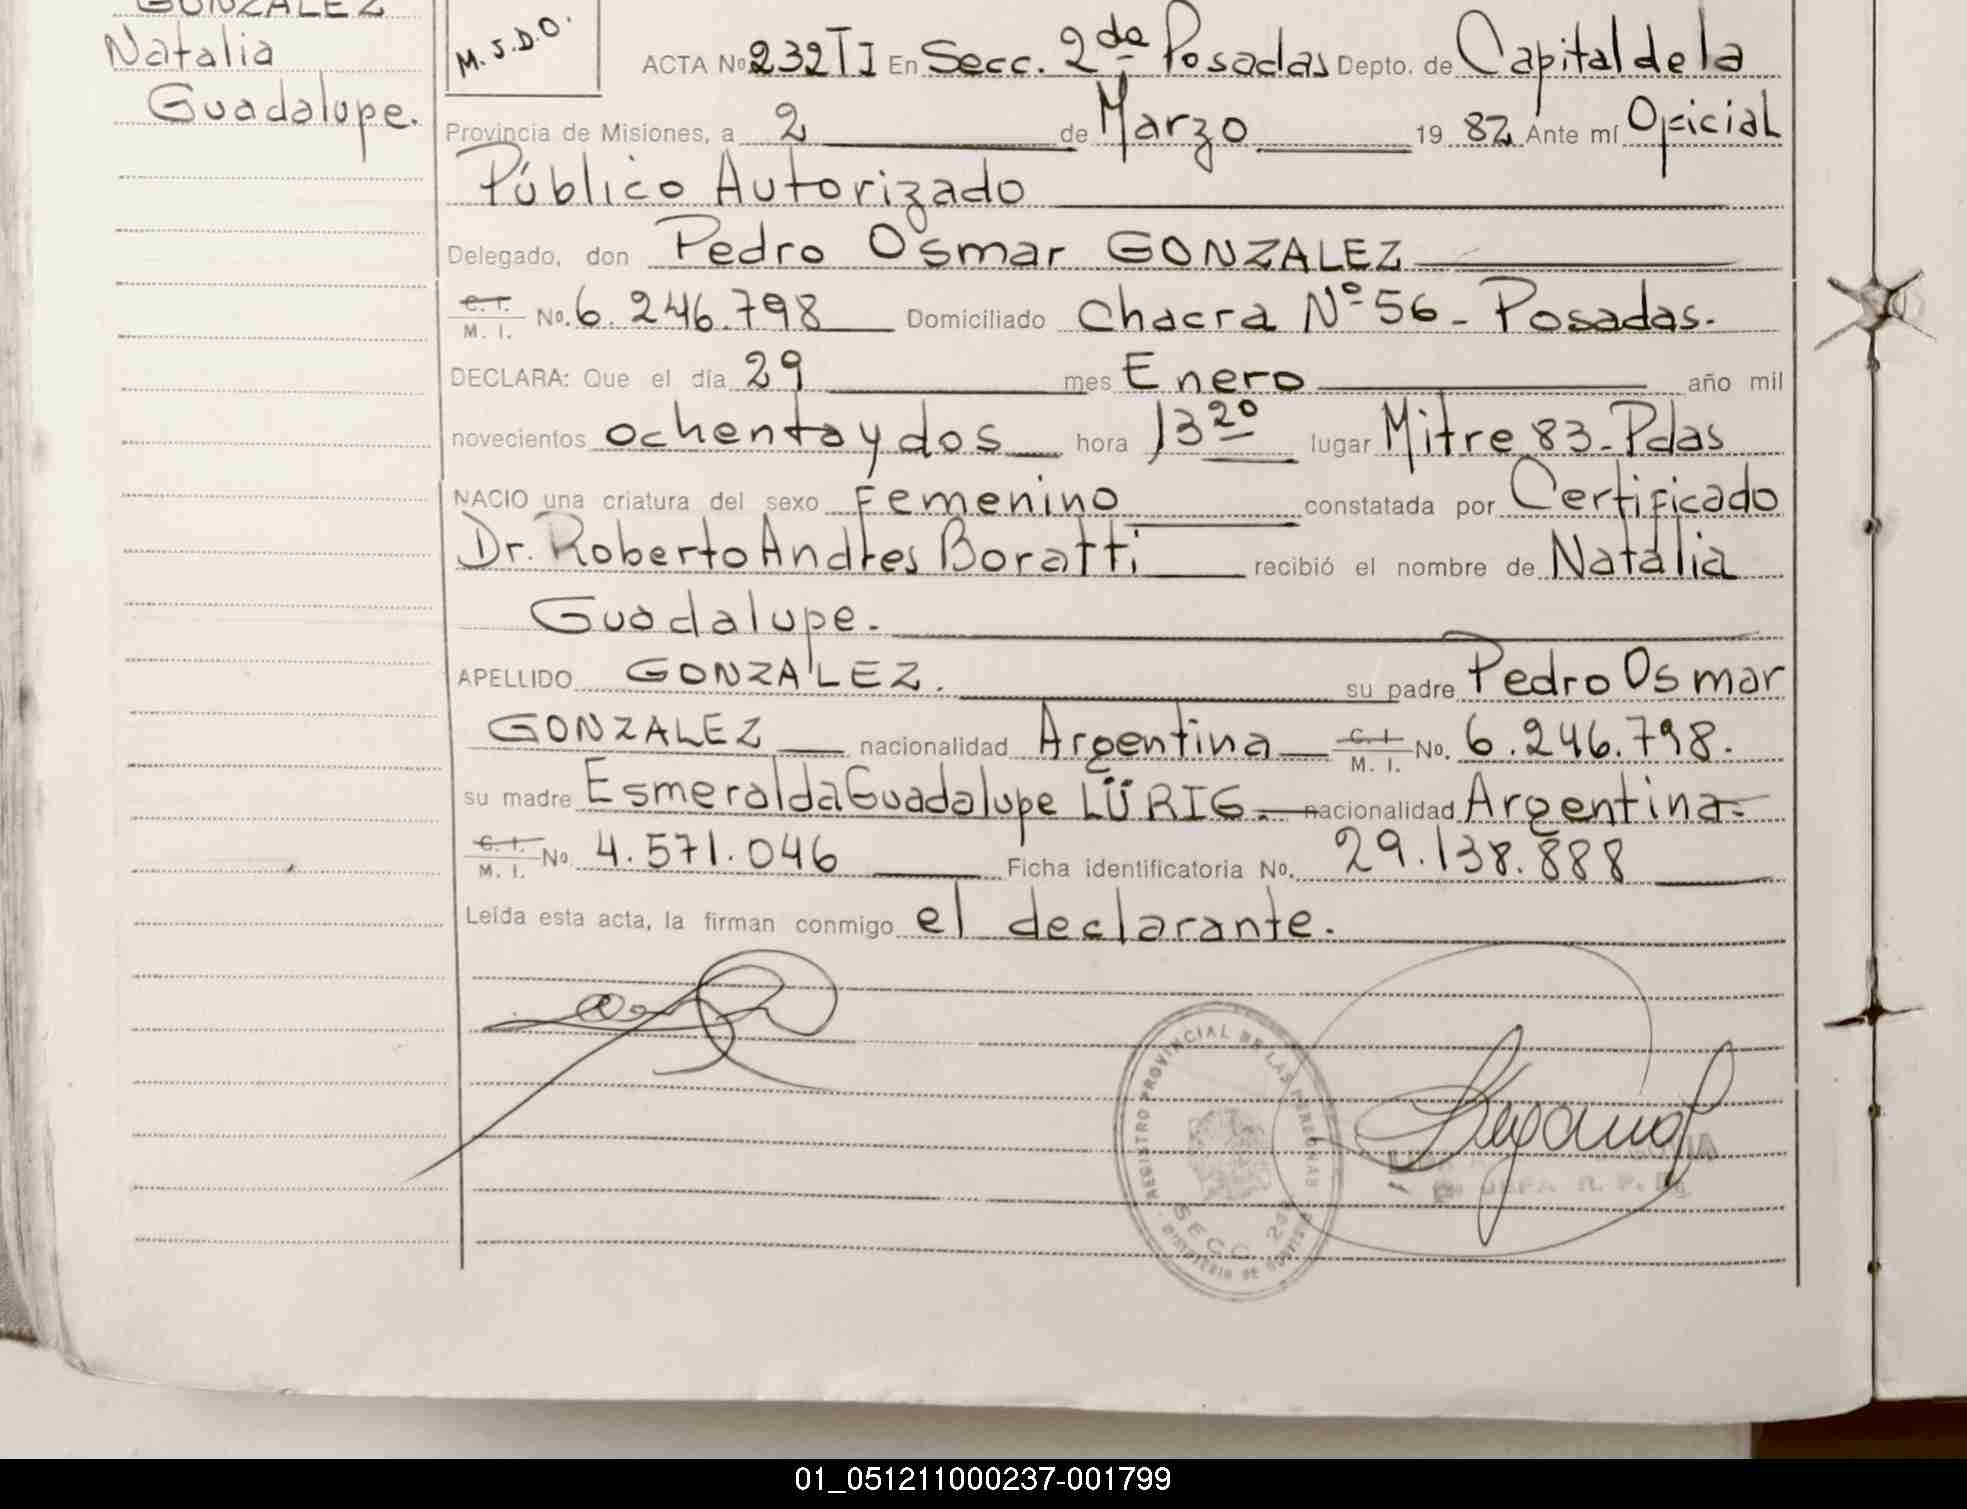 GONZALEZ
Natalia
Guadalupe.
M.J.D.O.
ACTA No 232 TI En Secc. 2da Posadas Depto. de Capital de la
Provincia de Misiones, a 2 de Marzo 19 82 Ante mí Oficial
Público Autorizado
Delegado, don Pedro Osmar GONZALEZ
C. I. M. I. No. 6.246.798 Domiciliado Chacra Nº 56 - Posadas.
DECLARA: Que el día 29 mes Enero año mil
novecientos ochenta y dos hora 13 20 lugar Mitre 83 - Pdas
NACIO una criatura del sexo Femenino constatada por Certificado
Dr. Roberto Andres Boratti recibió el nombre de Natalia
Guadalupe.
APELLIDO GONZALEZ. su padre Pedro Osmar
GONZALEZ nacionalidad Argentina C. I. M. I. No. 6.246.798.
su madre Esmeralda Guadalupe LÜRIG. nacionalidad Argentina
C. I. M. I. No. 4.571.046 Ficha identificatoria No. 29.138.888
Leída esta acta, la firman conmigo el declarante.
REGISTRO PROVINCIAL DE LAS PERSONAS
SECC. 2da
MINISTERIO DE GOBIERNO
JEFA R. P.
01_051211000237-001799